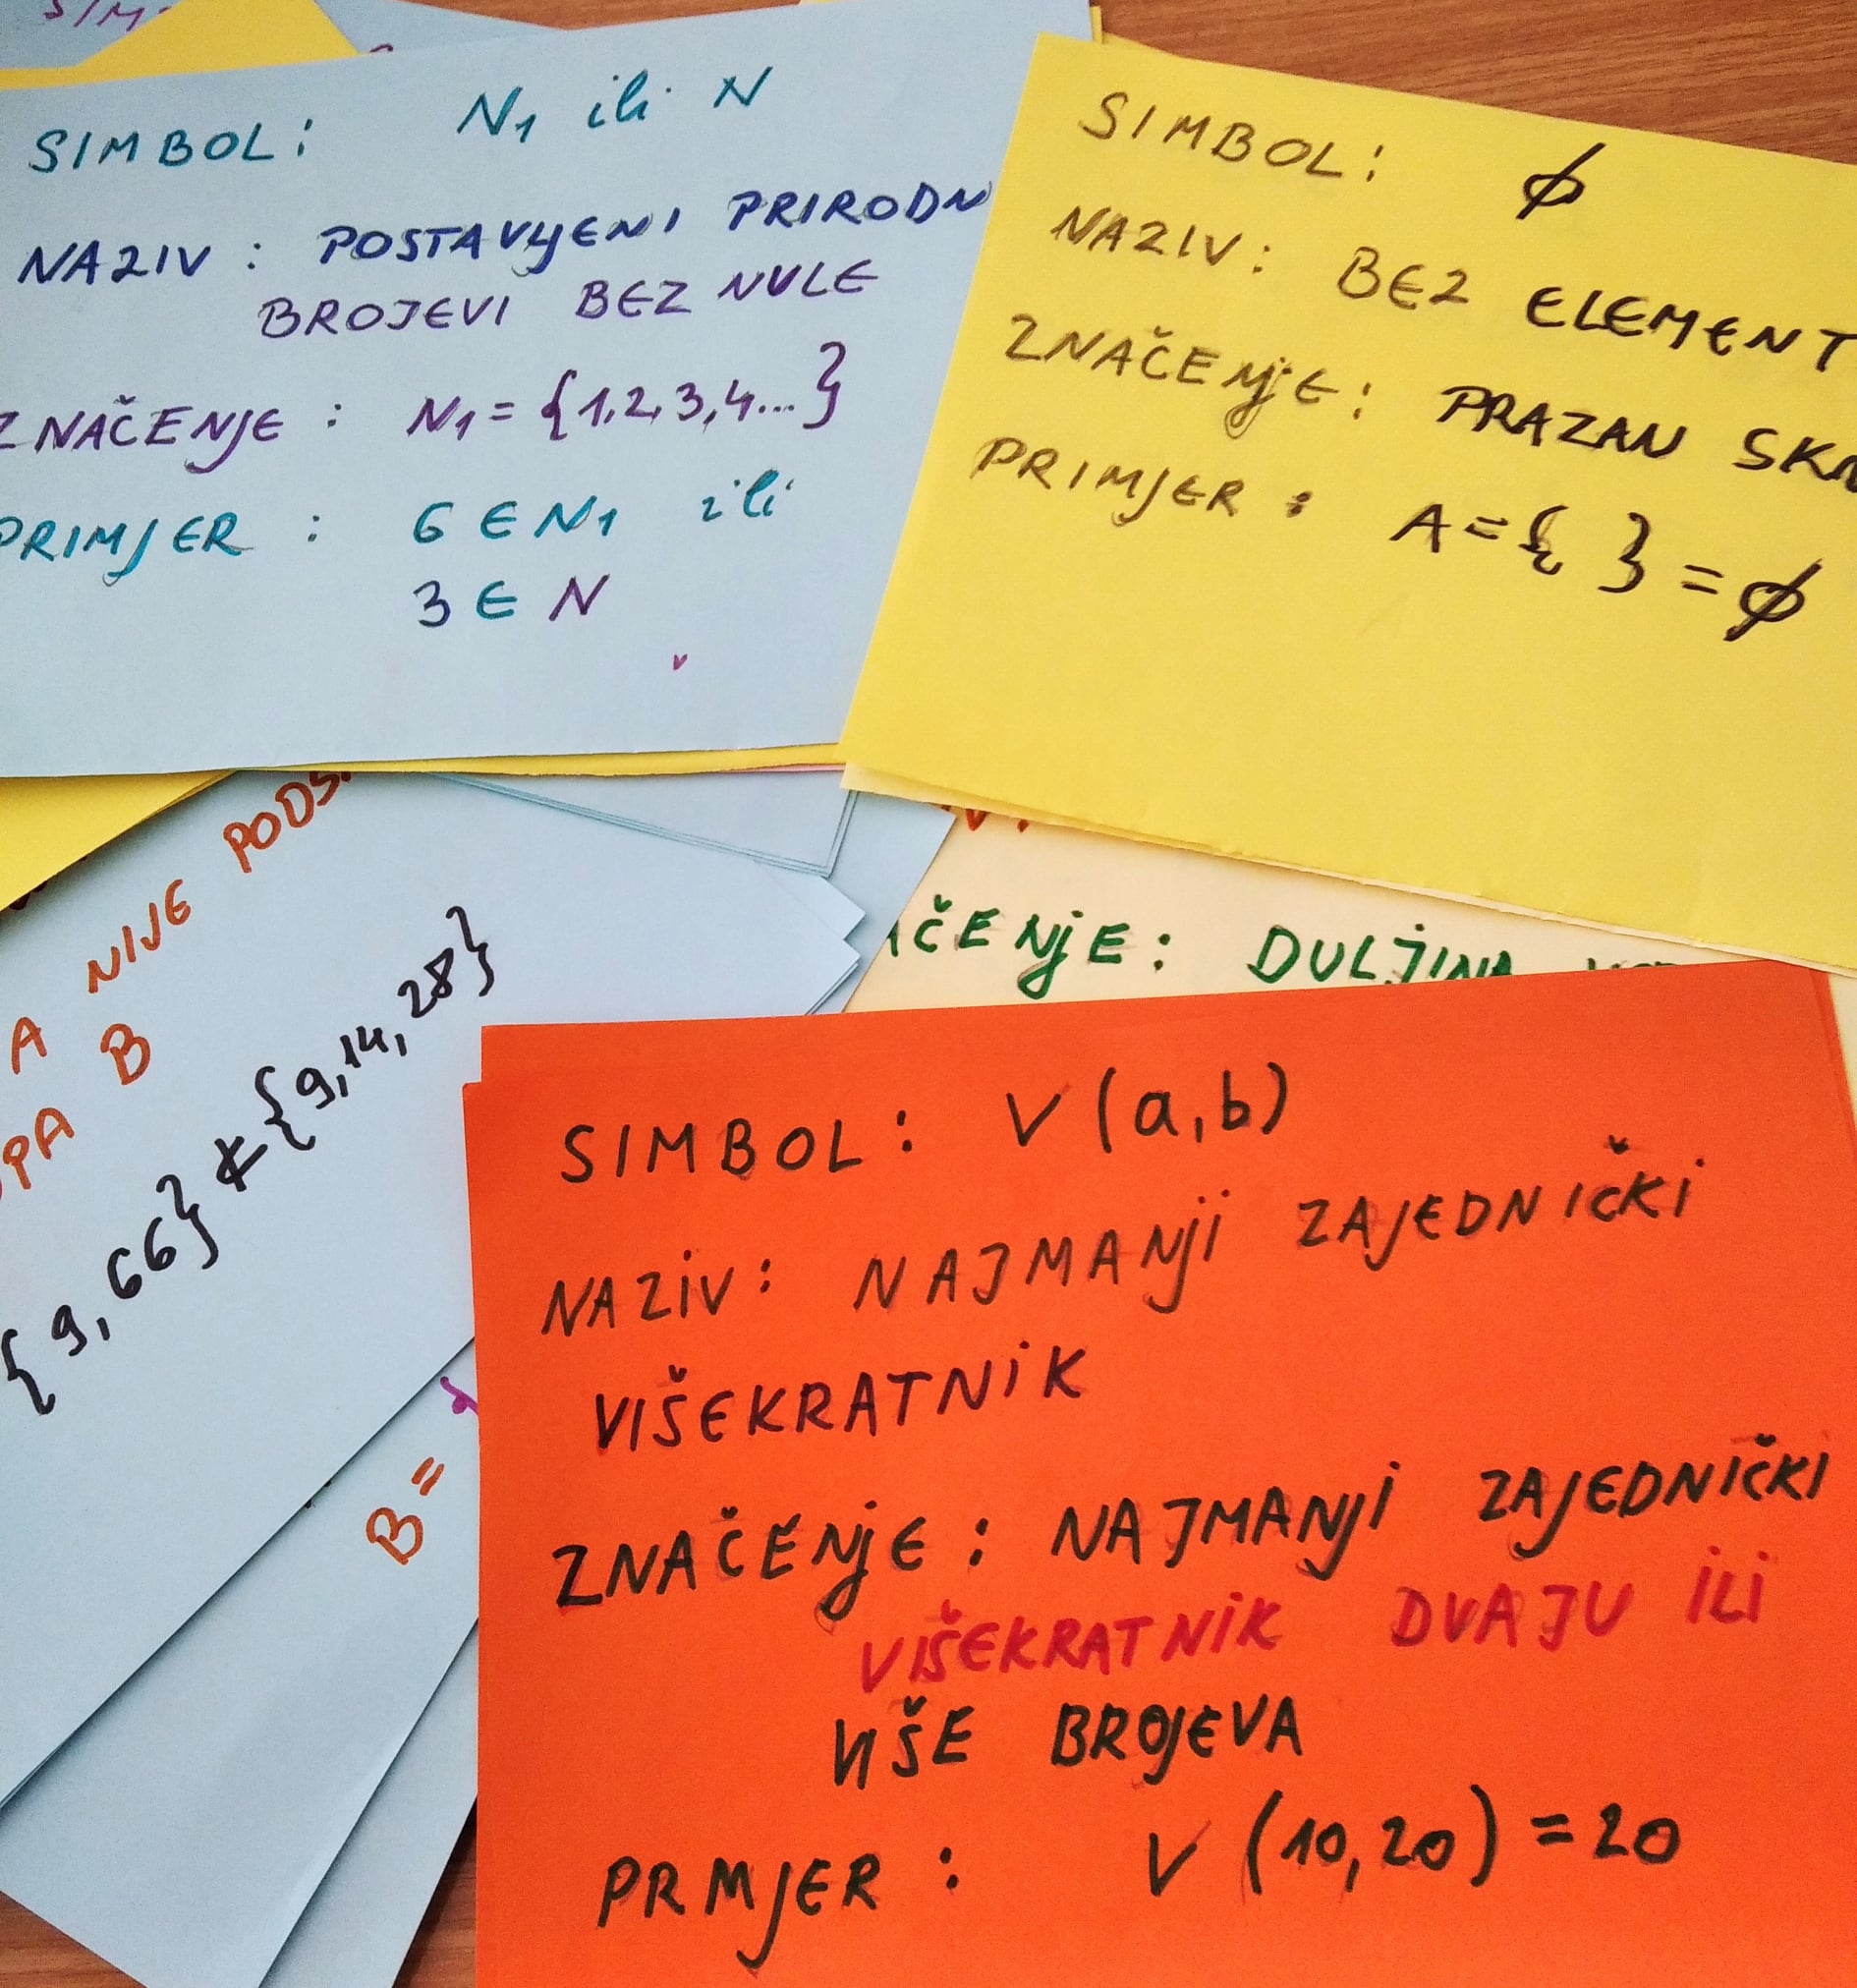 SIMBOL: N1 ili N
NAZIV: POSTAVLJENI PRIRODN
BROJEVI BEZ NULE
ZNAČENJE: N1 = {1,2,3,4...}
PRIMJER: 6 ∈ N1 ili
3 ∈ N
SIMBOL: ∅
NAZIV: BEZ ELEMENT
ZNAČENJE: PRAZAN SK
PRIMJER: A = { } = ∅
A NIJE PODS
PA B
{9,66} ⊄ {9,14,28}
B =
AČENJE: DULJINA
SIMBOL: V(a,b)
NAZIV: NAJMANJI ZAJEDNIČKI
VIŠEKRATNIK
ZNAČENJE: NAJMANJI ZAJEDNIČKI
VIŠEKRATNIK DVAJU ILI
VIŠE BROJEVA
PRMJER: V(10,20)=20